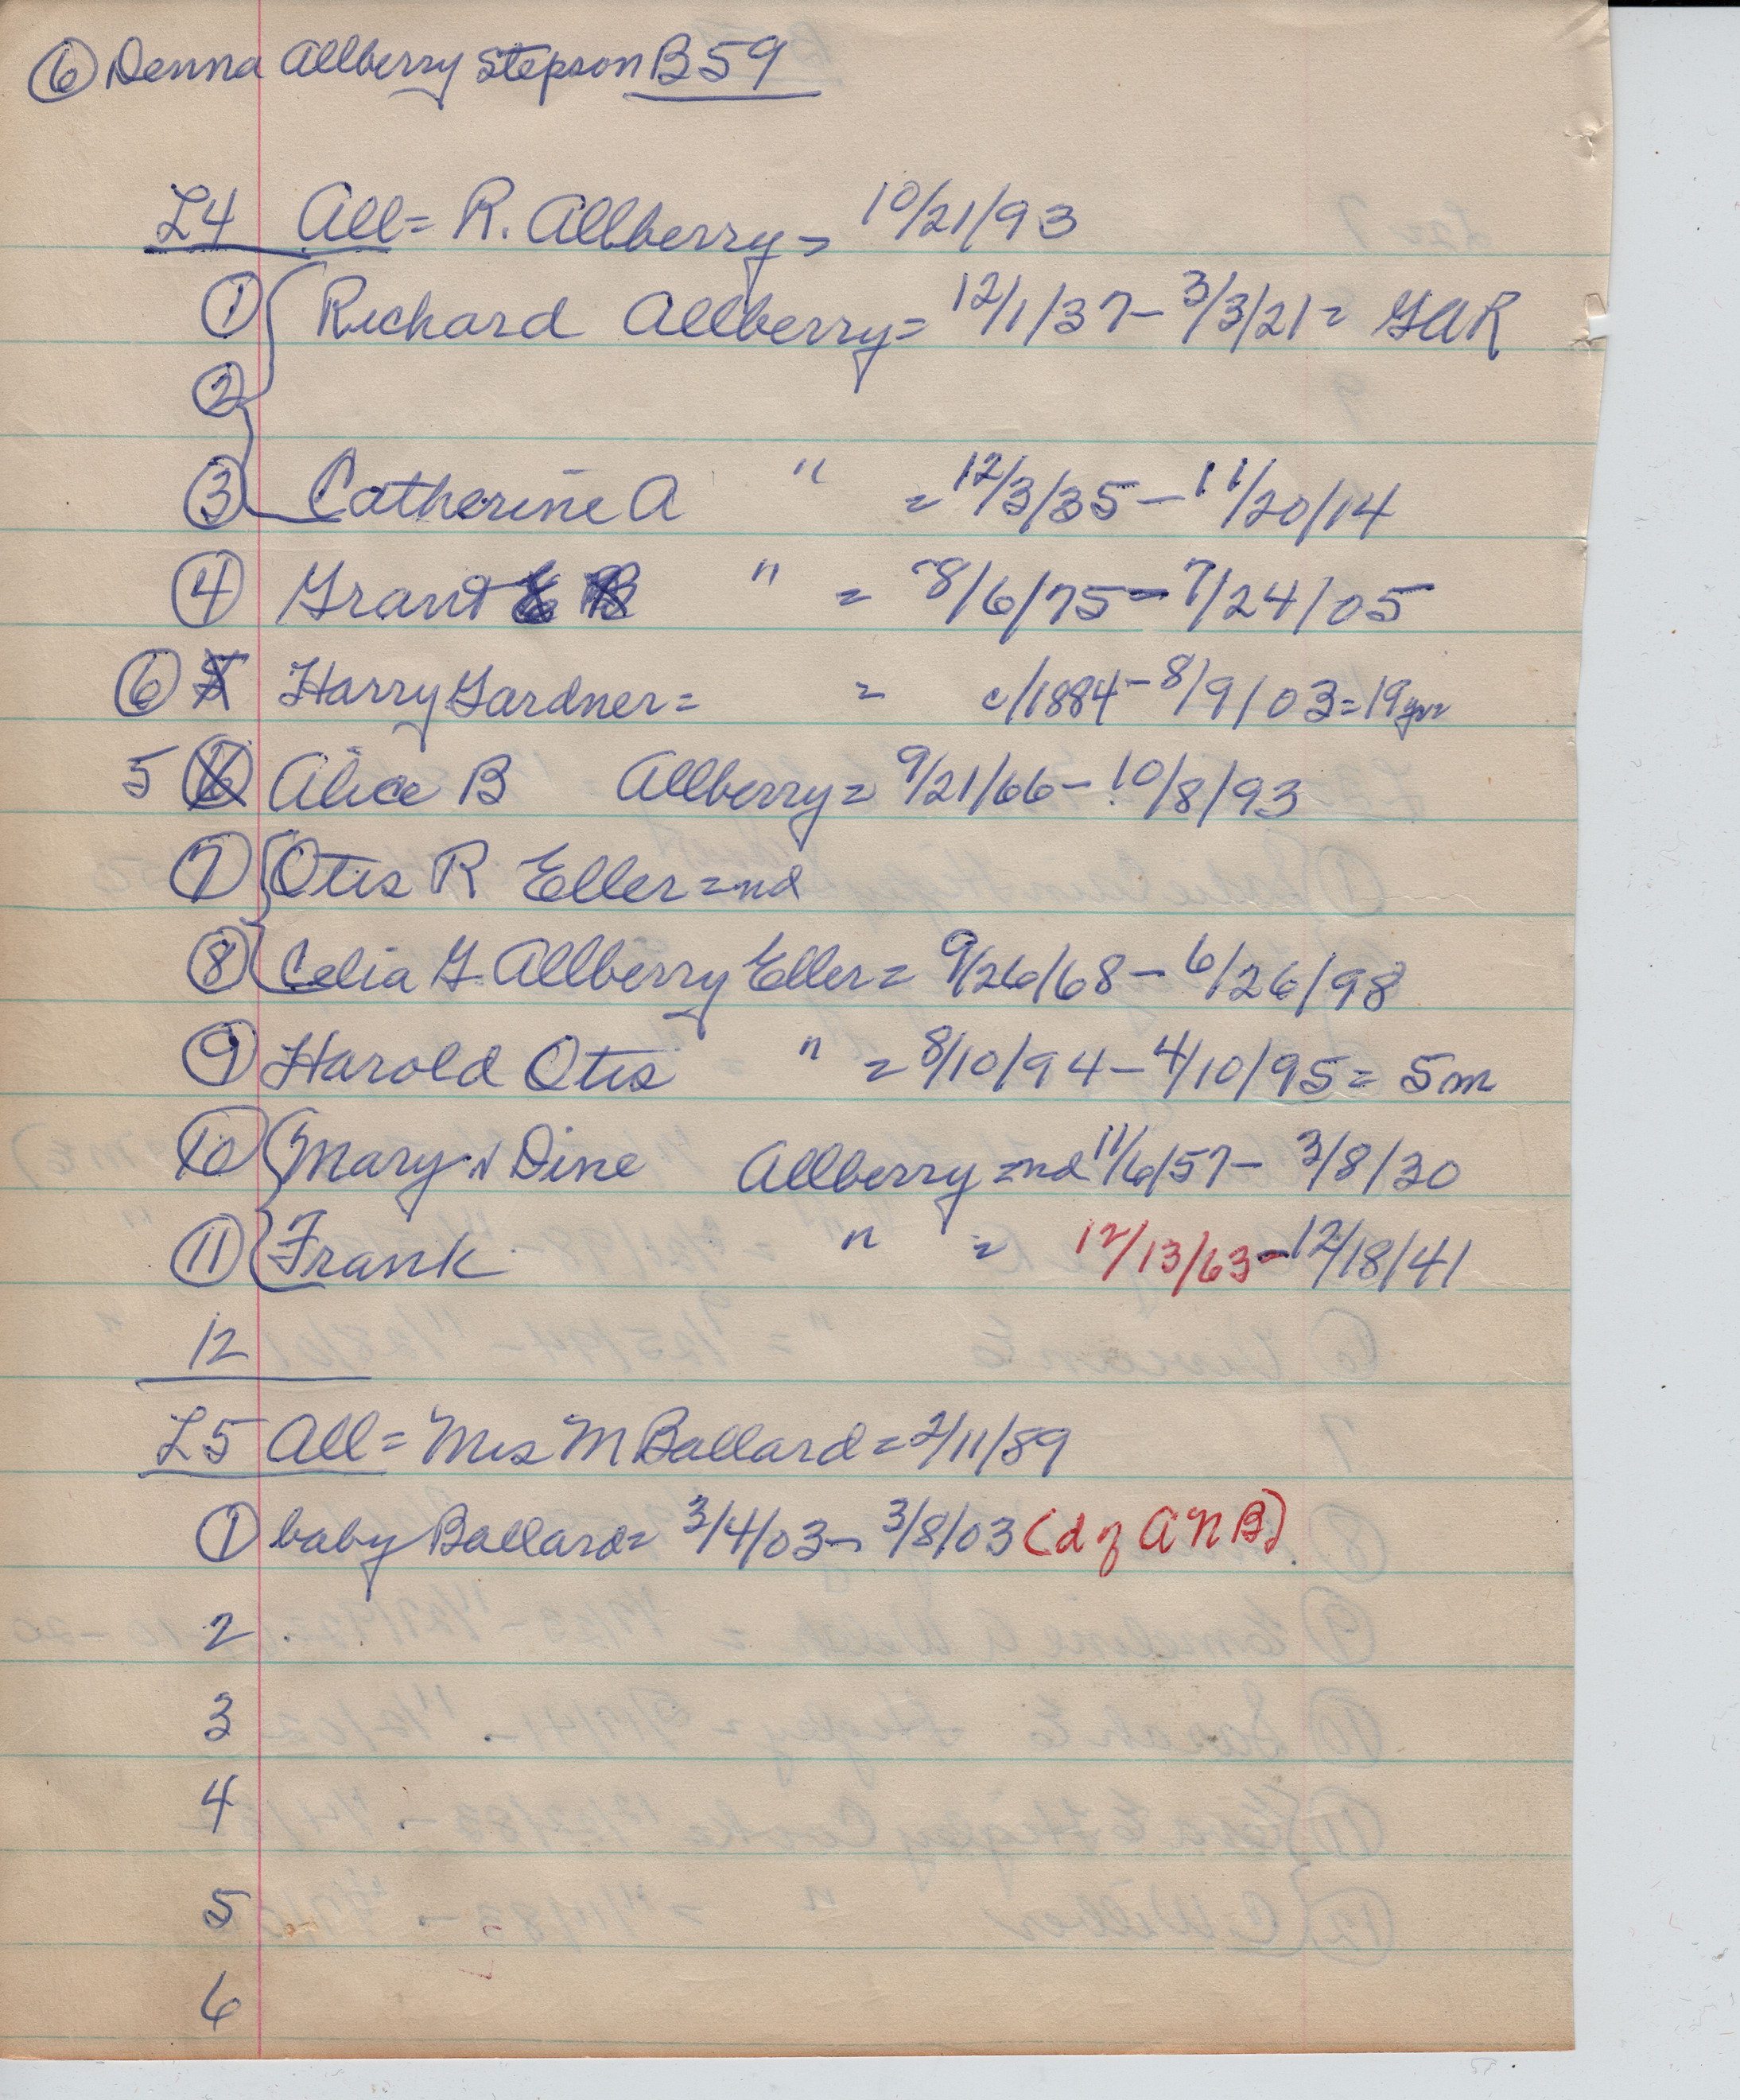 ⑥ Denna Allberry Stepson B59
L4 All = R. Allberry = 10/21/93
① Richard Allberry = 12/1/37 - 3/3/21 = GAR
②
③ Catherine A " = 12/3/35 - 11/20/14
④ Grant " = 8/6/75 - 7/24/05
⑥ 5 Harry Gardner = = c/1884 - 8/9/03 = 19yrs
5 ⑥ Alice B Allberry = 9/21/66 - 10/8/93
⑦ Otis R Eller = nd
⑧ Celia G Allberry Eller = 9/26/68 - 6/26/98
⑨ Harold Otis " = 8/10/94 - 4/10/95 = 5m
⑩ Mary N Dine Allberry = nd 11/6/57 - 3/8/30
⑪ Frank " = 12/13/63 - 12/18/41
12
L5 All = Mrs M Ballard = 2/11/89
① baby Ballard = 3/4/03 - 3/8/03 (d of A N B)
2
3
4
5
6